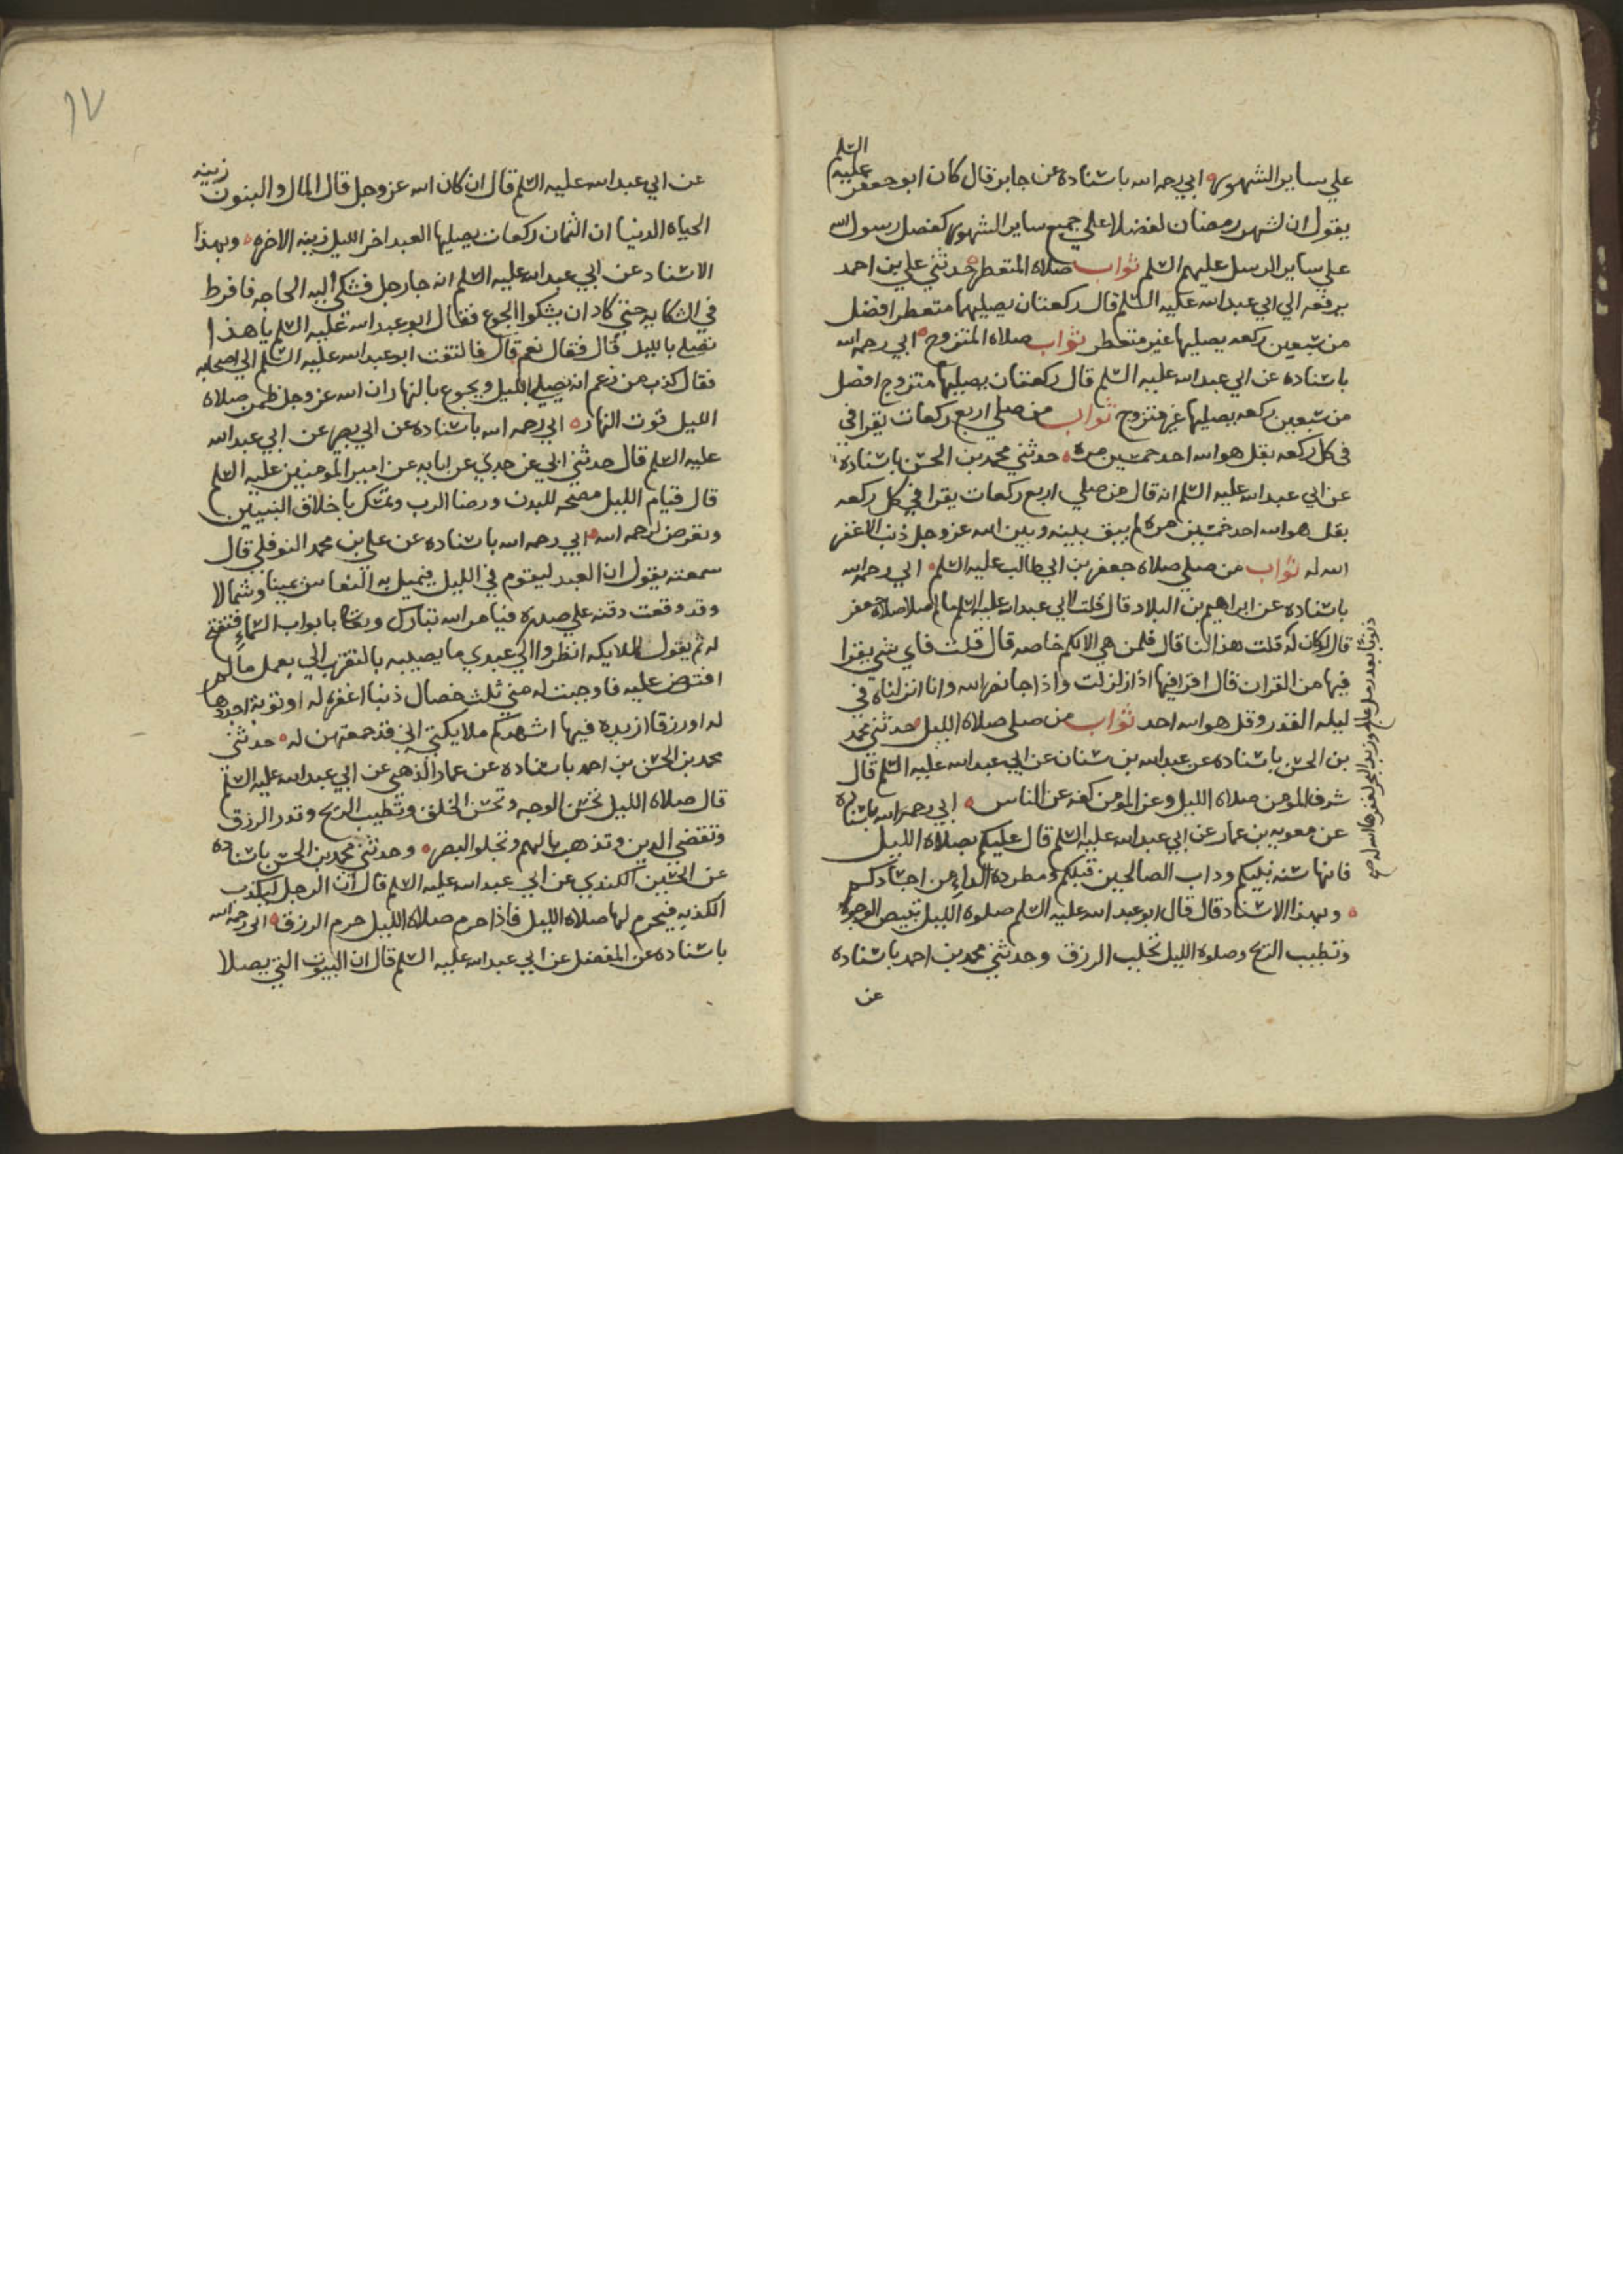 علي ساير الشهور ابي رحمه الله باسناده عن جابر قال كان ابو جعفر عليه السلم
يقول ان لشهر رمضان لفضلا علي جميع ساير الشهور كفضل رسول الله
علي ساير الرسل عليهم السلم ثواب صلاه المتعطر حدثني علي بن احمد
يرفعه الي ابي عبد الله عليه السلم قال ركعتان يصليهما متعطر افضل
من سبعين ركعه يصليها غير متعطر ثواب صلاه المتزوج ابي رحمه الله
باسناده عن ابي عبد الله عليه السلم قال ركعتان يصليها متزوج افضل
من سبعين ركعه يصليها غير متزوج ثواب من صلي اربع ركعات يقرا في
في كل ركعه بقل هو الله احد خمسين مره حدثني محمد بن الحسن باسناده
عن ابي عبد الله عليه السلم انه قال من صلي اربع ركعات يقرا في كل ركعه
بقل هو الله احد خمسين مره لم يبق بينه وبين الله عز وجل ذنب الا غفر
الله له ثواب من صلي صلاه جعفر بن ابي طالب عليه السلم ابي رحمه الله
باسناده عن ابراهيم بن البلاد قال قلت لابي عبد الله عليه السلم ما لمن صلا صلاه جعفر
قال لو كان له قلت هذا لنا قال فلمن هي الا لكم خاصه قال قلت فاي شي يقرا
فيها من القران قال اقرا فيها اذا زلزلت واذا جا نصر الله وانا انزلناه في
ليله القدر وقل هو الله احد ثواب من صلي صلاه الليل حدثني محمد
بن الحسن باسناده عن عبد الله بن سنان عن ابي عبد الله عليه السلم قال
شرف المومن صلاه الليل وعز المومن كفه عن الناس ابي رحمه الله باسناده
عن معويه بن عمار عن ابي عبد الله عليه السلم قال عليكم بصلاه الليل
فانها سنه نبيكم وداب الصالحين قبلكم ومطرده الداء من اجسادكم
وبهذا الاسناد قال قال ابو عبد الله عليه السلم صلوه الليل تبيض الوجوه
وتطيب الريح وصلوه الليل تجلب الرزق وحدثني محمد بن احمد باسناده
عن
مثل رمل عالج وزبد البحر لغفرها الله له صح
١٧
عن ابي عبد الله عليه السلم قال ان كان الله عز وجل قال المال والبنون زينه
الحياه الدنيا ان الثمان ركعات يصليها العبد اخر الليل زينه الاخره وبهذا
الاسناد عن ابي عبد الله عليه السلم انه جا رجل فشكي اليه الحاجه فافرط
في الشكايه حتي كاد ان يشكوا الجوع فقال ابو عبد الله عليه السلم يا هذا
تصلي بالليل قال فقال نعم قال فالتفت ابو عبد الله عليه السلم الي اصحابه
فقال كذب من زعم انه يصلي بالليل ويجوع بالنهار ان الله عز وجل ضمن صلاه
الليل قوت النهار ابي رحمه الله باسناده عن ابي بصير عن ابي عبد الله
عليه السلم قال حدثني ابي عن جدي عن ابايه عن امير المومنين عليه السلم
قال قيام الليل مصحه للبدن ورضا الرب وتمسك باخلاق النبيين
وتعرض لرحمه الله ابي رحمه الله باسناده عن علي بن محمد النوفلي قال
سمعته يقول ان العبد ليقوم في الليل فيميل به النعاس يمينا وشمالا
وقد وقعت دقنه علي صدره فيامر الله تبارك وتعالا بابواب السماء فتفتح
له ثم يقول للملايكه انظروا الي عبدي ما يصيبه بالتقرب الي بعمل ما لم
افترض عليه فاوجبت له مني ثلث خصال ذنبا اغفره له او توبة اجددها
له او رزقا ازيده فيها اشهدكم ملايكتي اني قد جمعتهن له حدثني
محمد بن الحسن بن احمد باسناده عن عمار الذهبي عن ابي عبد الله عليه السلم
قال صلاه الليل تحسن الوجه وتحسن الخلق وتطيب الريح وتدر الرزق
وتقضي الدين وتذهب بالهم وتجلو البصر وحدثني محمد بن الحسن باسناده
عن الحسين الكندي عن ابي عبد الله عليه السلم قال ان الرجل ليكذب
الكذبه فيحرم لها صلاه الليل فاذا حرم صلاه الليل حرم الرزق ابي رحمه الله
باسناده عن المفضل عن ابي عبد الله عليه السلم قال ان البيوت التي يصلا